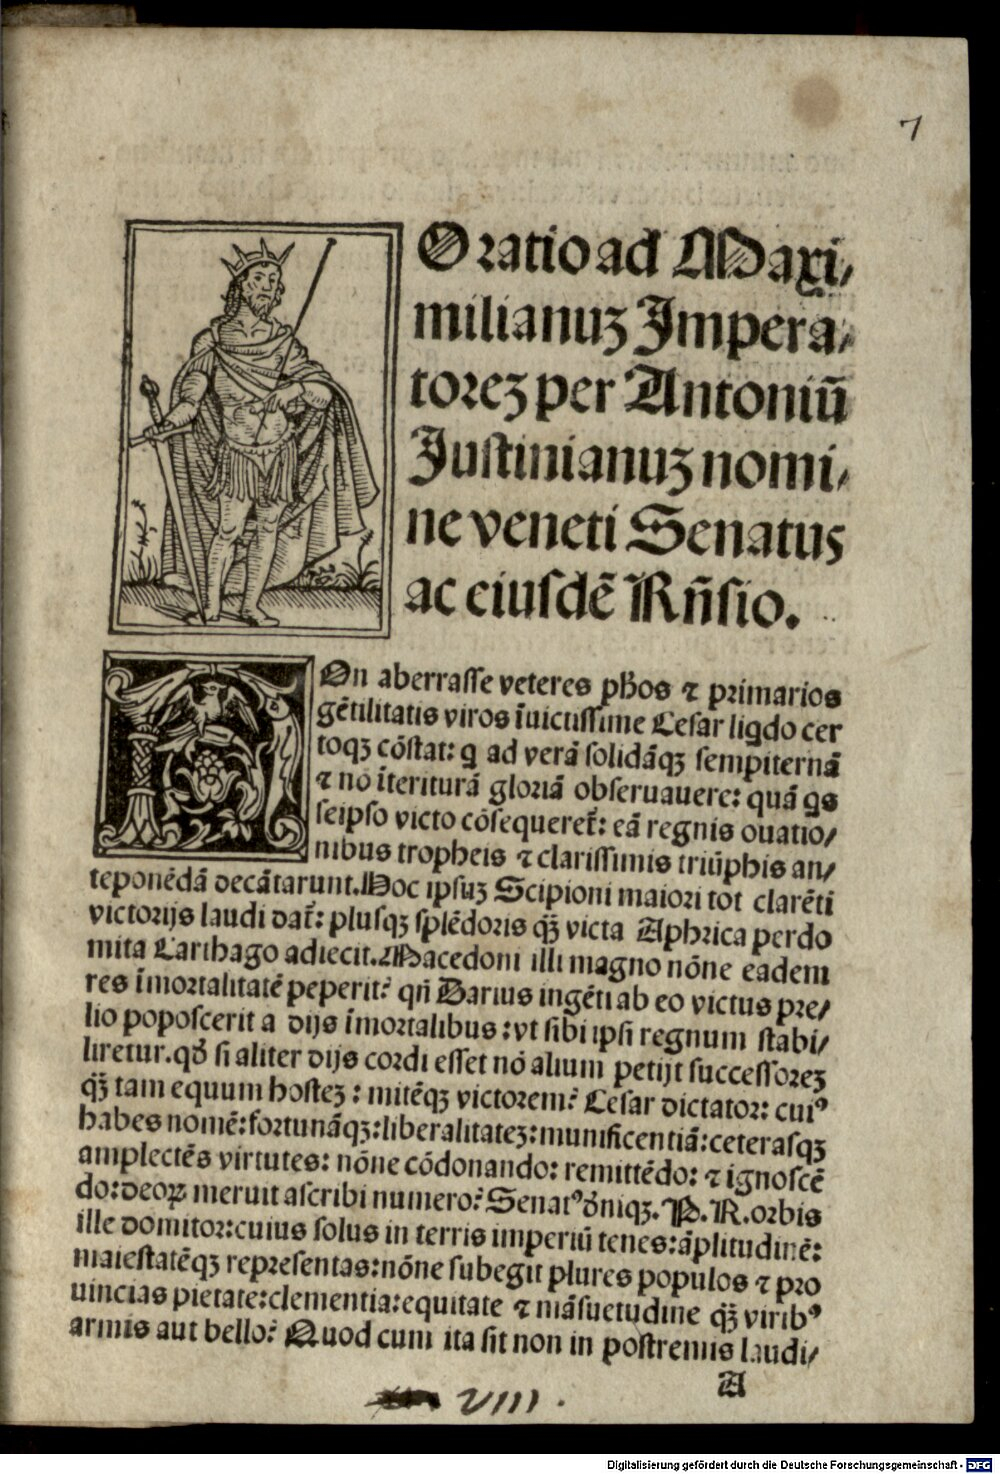 7
Oratio ad Maxi⸗
milianuꝫ Impera⸗
toreꝫ per Antoniū
Justinianuꝫ nomi⸗
ne veneti Senatus
ac eiusdē Rn̄sio.
NOn aberrasse veteres ph̄os ⁊ primarios
gētilitatis viros īuictissime Cesar liqdo cer
toqꝫ cōstat: q ad verā solidāqꝫ sempiternā
⁊ nō īteriturā gloriā obseruauere: quā qs
seipso victo cōsequeret̄: eā regnis ouatio⸗
nibus tropheis ⁊ clarissimis triūphis an⸗
teponēdā decātarunt. Hoc ipsuꝫ Scipioni maiori tot clarēti
victorijs laudi dat̄: plusqꝫ splēdoris qꝫ̄ victa Aphrica perdo
mita Carthago adiecit. Macedoni illi magno nōne eadem
res īmortalitatē peperit? qn̄ Darius ingēti ab eo victus pre⸗
lio poposcerit a dijs īmortalibus: vt sibi ipsi regnum stabi⸗
liretur. qđ si aliter dijs cordi esset nō alium petijt successoreꝫ
qꝫ̄ tam equum hosteꝫ: mitēqꝫ victorem? Cesar dictator: cuiꝰ
habes nomē: fortunāqꝫ: liberalitateꝫ: munificentiā: ceterasqꝫ
amplectēs virtutes: nōne cōdonando: remittēdo: ⁊ ignoscē
do: deoꝝ meruit ascribi numero? Senatꝰ đniqꝫ. P. R. orbis
ille domitor: cuius solus in terris imperiū tenes: āplitudinē:
maiestatēqꝫ representas: nōne subegit plures populos ⁊ pro
uincias pietate: clementia: equitate ⁊ māsuetudine qꝫ̄ viribꝰ
armis aut bello? Quod cum ita sit non in postremis laudi⸗
A
VIII.
Digitalisierung gefördert durch die Deutsche Forschungsgemeinschaft - DFG